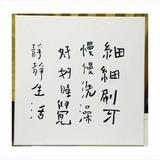 細細刷牙
慢慢洗澡
好好睡個覺
靜靜生活